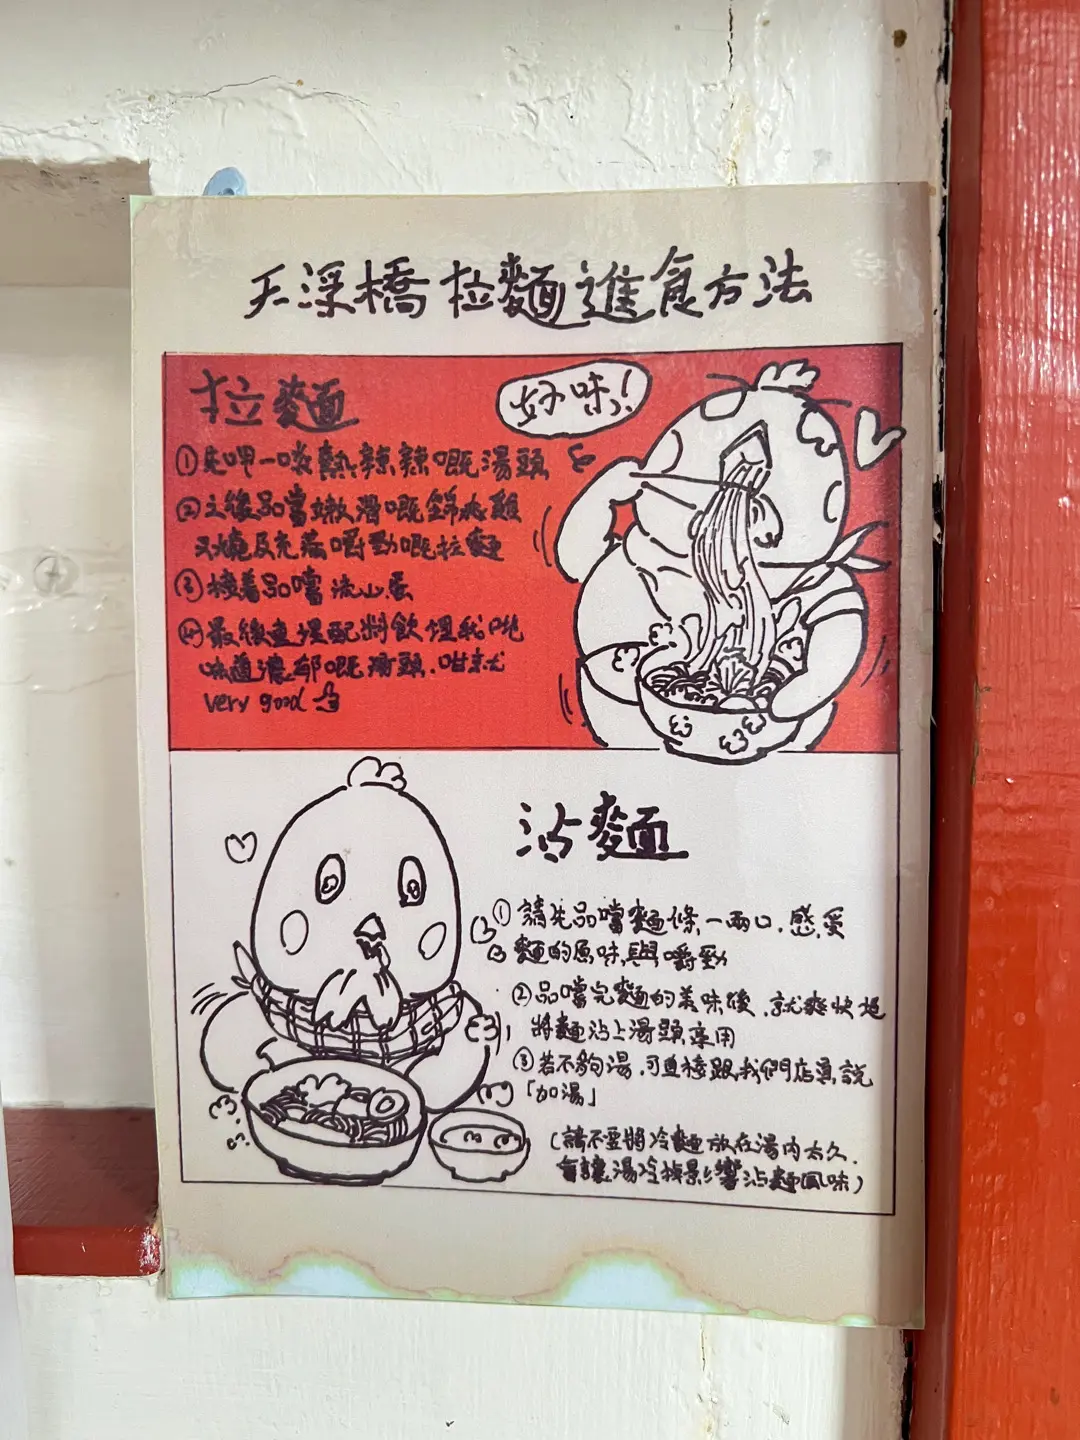 天深橋拉麵進食方法
拉麵
好味!
①先呷一啖熱辣辣嘅湯頭
②之後品嚐嫩滑嘅雞
叉燒及充滿嚼勁嘅拉麵
③接着品嚐流心蛋
④最後連埋配料飲埋我哋
味道濃郁嘅湯頭.咁就
very good
沾麵
①請先品嚐麵條,一兩口,感受
麵的原味與嚼勁
②品嚐完麵的美味後,就爽快地
將麵沾上湯頭享用
③若不夠湯,可直接跟我們店員說
「加湯」
(請不要將冷麵放在湯內太久.
會讓湯冷掉影響沾麵風味)